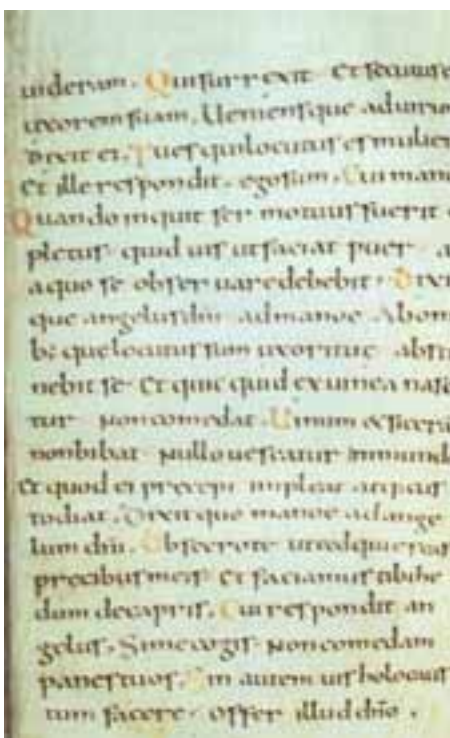 uideram. Qui surrexit et secutus e
uxorem suam. Ueniensque aduiru
dixit ei. Tu es qui locutus es mulier
Et ille respondit. ego sum. Cui manu
Quando inquit sermo tuus fuerit
pletus quid uis ut faciat puer a
a quo se obseruare debebit. Dixi
que angelus dni ad manoe Abom
b; que locutus sum uxori tuae absti
nebit se. Et quicquid ex uinea nasc
tur non comedat. Uinum & sicera
non bibat nullo uescatur inmund
Et quod ei precepi impleat atq; cus
todiat. Dixitque manoe ad ange
lum dni. Obsecro te ut adquiescas
precibus meis et faciamus tibi he
dum de capris. Cui respondit an
gelus. Si me cogis non comedam
panes tuos. Sin autem uis holocaus
tum facere. offer illud dno.